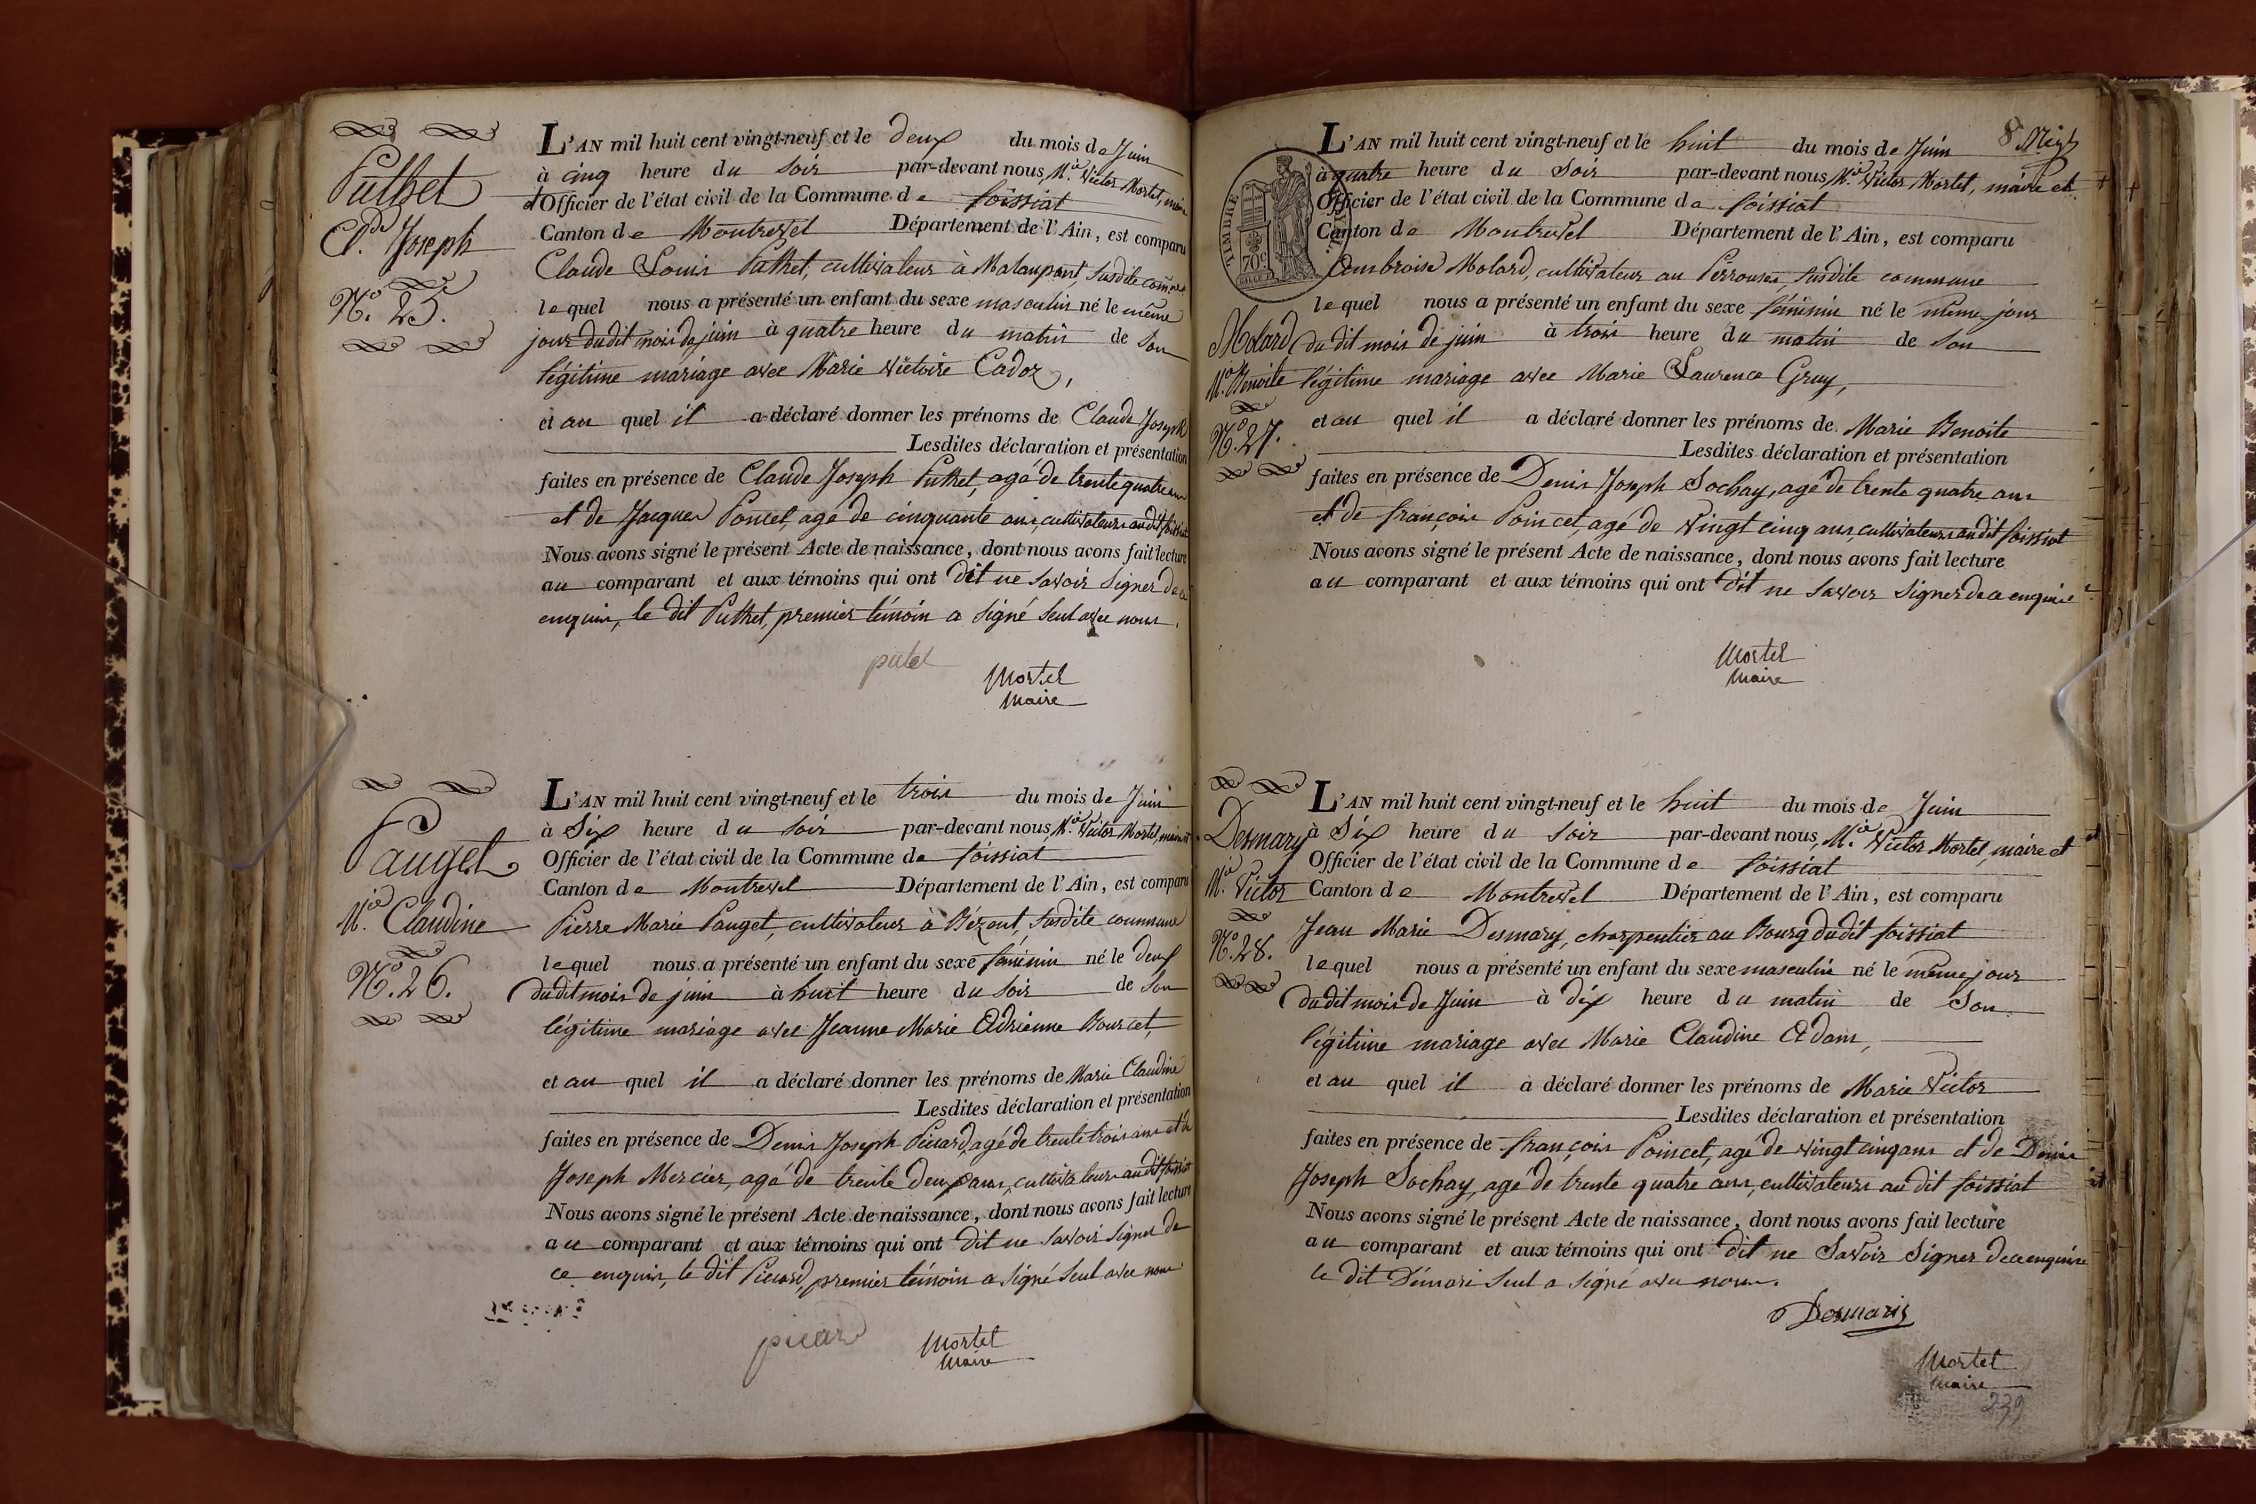 Puthet
Cl.de Joseph
N.o 25.
L'AN mil huit cent vingt-neuf et le deux du mois de Juin
à cinq heure du soir par-devant nous, M.ie Victor Mortel, maire
et Officier de l'état civil de la Commune de foissiat
Canton de Montrevel Département de l'Ain, est comparu
Claude Louis Puthet, cultivateur à Malaupont, susdite commune
lequel nous a présenté un enfant du sexe masculin né le même
jour du dit mois de juin à quatre heure du matin de son
légitime mariage avec Marie Victoire Cadoz,
et au quel il a déclaré donner les prénoms de Claude Joseph
Lesdites déclaration et présentation
faites en présence de Claude Joseph Puthet, agé de trente quatre ans
et de Jacques Poncet, agé de cinquante ans, cultivateurs au dit foissiat
Nous avons signé le présent Acte de naissance, dont nous avons fait lecture
au comparant et aux témoins qui ont dit ne savoir signer de ce
enquis, le dit Puthet, premier témoin a signé seul avec nous.
putet
Mortel
Maire
Pauget
M.ie Claudine
N.o 26.
L'AN mil huit cent vingt-neuf et le trois du mois de Juin
à Six heure du soir par-devant nous, M.ie Victor Mortel, maire et
Officier de l'état civil de la Commune de foissiat
Canton de Montrevel Département de l'Ain, est comparu
Pierre Marie Pauget, cultivateur à Bézout, susdite commune
lequel nous a présenté un enfant du sexe féminin né le deux
du dit mois de juin à huit heure du soir de son
légitime mariage avec Jeanne Marie Adrienne Bourcet,
et au quel il a déclaré donner les prénoms de Marie Claudine
Lesdites déclaration et présentation
faites en présence de Denis Joseph Picard, agé de trente trois ans et de
Joseph Mercier, agé de trente deux ans, cultivateurs au dit foissiat
Nous avons signé le présent Acte de naissance, dont nous avons fait lecture
au comparant et aux témoins qui ont dit ne savoir signer de
ce enquis, le dit Picard, premier témoin a signé seul avec nous.
picard
Mortel
Maire
8
TIMBRE
70c
Molard
M.ie Benoite
N.o 27.
L'AN mil huit cent vingt-neuf et le huit du mois de Juin
à quatre heure du soir par-devant nous, M.ie Victor Mortel, maire et
Officier de l'état civil de la Commune de foissiat
Canton de Montrevel Département de l'Ain, est comparu
Ambroise Molard, cultivateur au Perrouses, susdite commune
lequel nous a présenté un enfant du sexe féminin né le même jour
du dit mois de juin à trois heure du matin de son
légitime mariage avec Marie Laurence Gruy,
et au quel il a déclaré donner les prénoms de Marie Benoite
Lesdites déclaration et présentation
faites en présence de Denis Joseph Sochay, agé de trente quatre ans
et de françois Poincet, agé de vingt cinq ans, cultivateurs au dit foissiat
Nous avons signé le présent Acte de naissance, dont nous avons fait lecture
au comparant et aux témoins qui ont dit ne savoir signer de ce enquis
Mortel
Maire
Desmary
M.ie Victor
N.o 28.
L'AN mil huit cent vingt-neuf et le huit du mois de Juin
à Six heure du soir par-devant nous, M.ie Victor Mortel, maire et
Officier de l'état civil de la Commune de foissiat
Canton de Montrevel Département de l'Ain, est comparu
Jean Marie Desmary, charpentier au Bourg du dit foissiat
lequel nous a présenté un enfant du sexe masculin né le même jour
du dit mois de Juin à dix heure du matin de son
légitime mariage avec Marie Claudine Adam,
et au quel il a déclaré donner les prénoms de Marie Victor
Lesdites déclaration et présentation
faites en présence de françois Poincet, agé de vingt cinq ans et de Denis
Joseph Sochay, agé de trente quatre ans, cultivateurs au dit foissiat
Nous avons signé le présent Acte de naissance, dont nous avons fait lecture
au comparant et aux témoins qui ont dit ne Savoir Signer de ce enquis
le dit Démari seul a signé avec nous.
Desmaris
Mortel
Maire
239